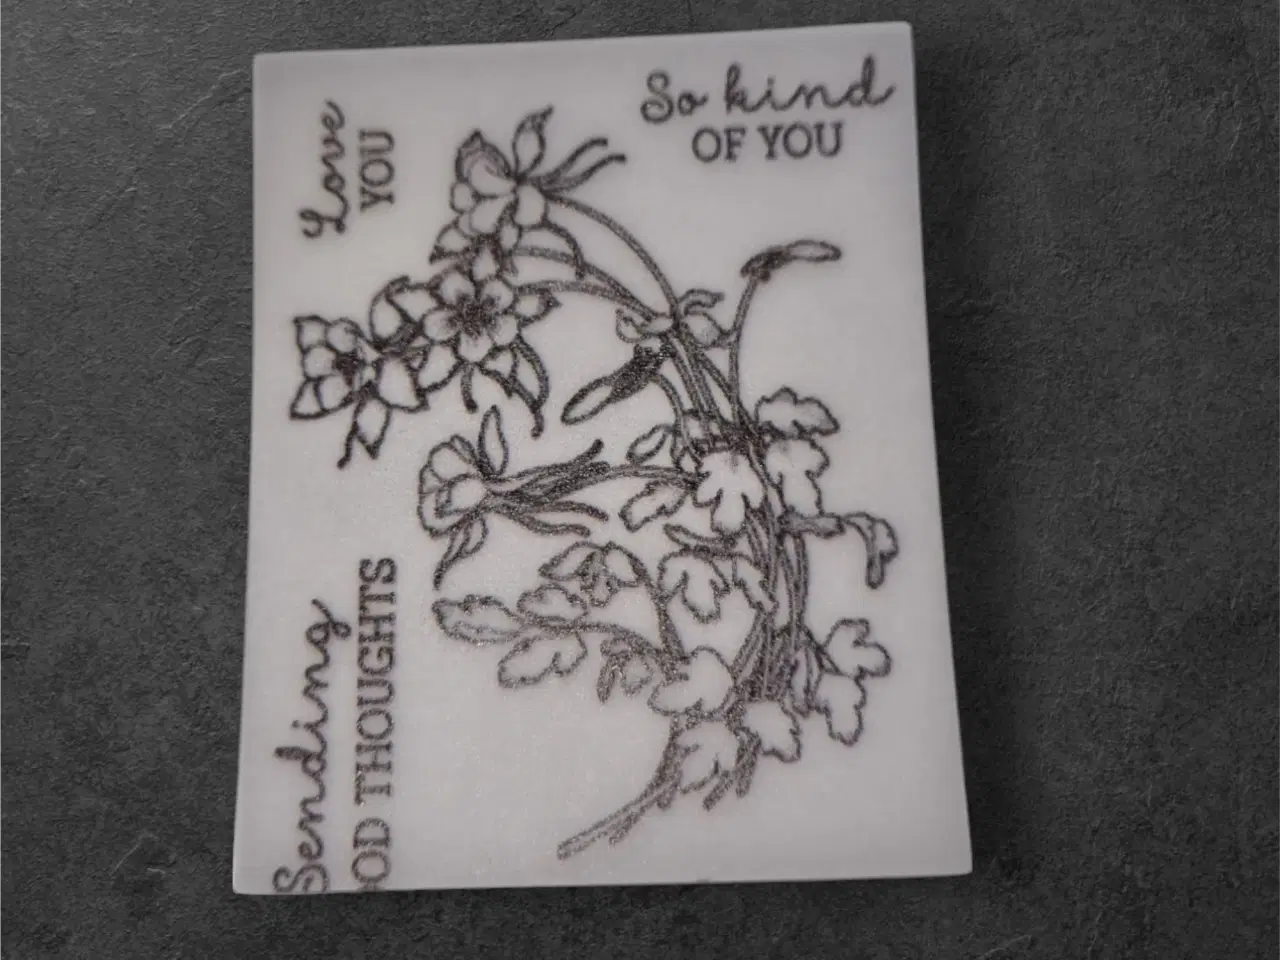 So kind
OF YOU
Love
YOU
Sending
OOD THOUGHTS